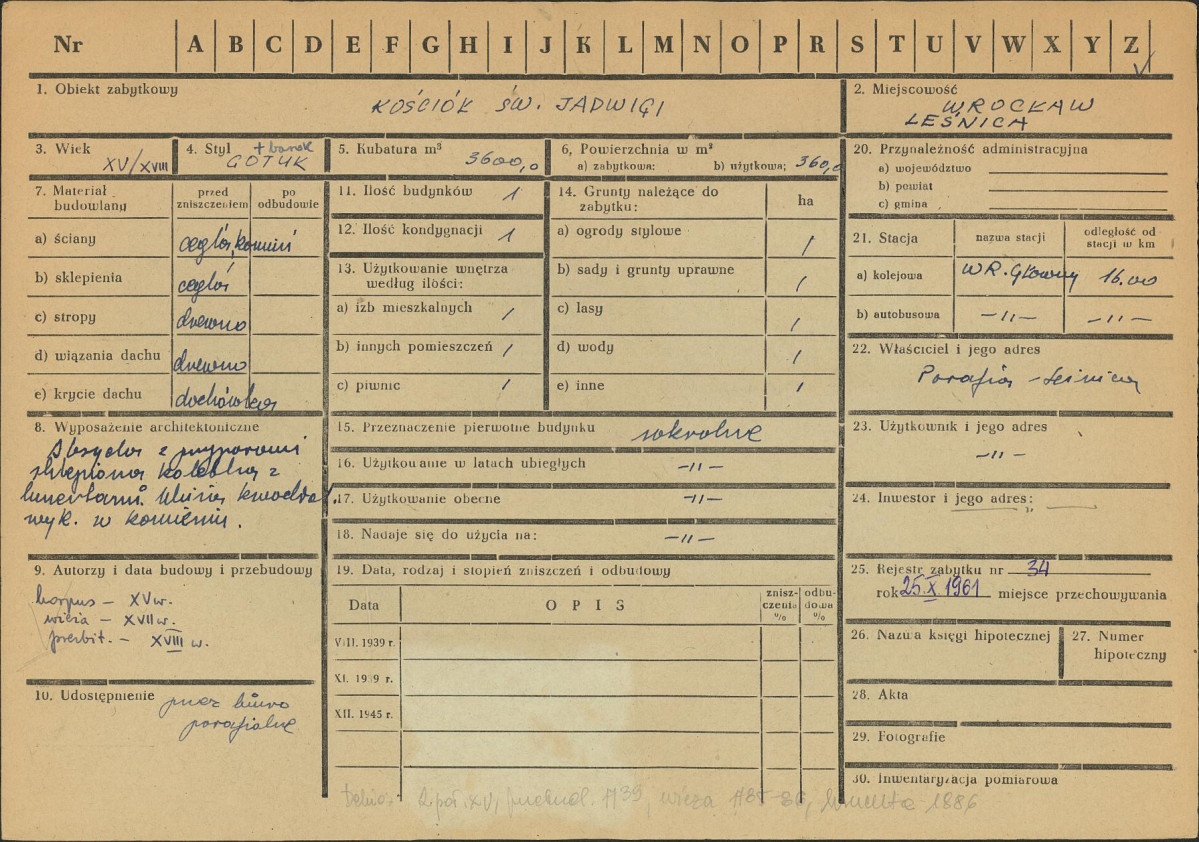 Nr A B C D E F G H I J K L M N O P R S T U V W X Y Z
1. Obiekt zabytkowy
KOŚCIÓŁ ŚW. JADWIGI
2. Miejscowość
WROCŁAW
LEŚNICA
3. Wiek
XV/XVIII
4. Styl + barok
GOTYK
5. Kubatura m³
3600,0
6, Powierzchnia w m²
a) zabytkowa: b) użytkowa: 360,0
7. Materiał budowlany
przed zniszczeniem
po odbudowie
a) ściany cegła, kamień
b) sklepienia cegła
c) stropy drewno
d) wiązania dachu drewno
e) krycie dachu dachówka
8. Wyposażenie architektoniczne
Absyda z przyporami
sklepiona kolebką z
lunetami. Wieża kwadrat.
wyk. w kamieniu.
9. Autorzy i data budowy i przebudowy
korpus – XV w.
wieża – XVII w.
prezbit. – XVIII w.
10. Udostępnienie przez biuro
parafialne
11. Ilość budynków 1
12. Ilość kondygnacji 1
13. Użytkowanie wnętrza
według ilości:
a) izb mieszkalnych /
b) innych pomieszczeń /
c) piwnic /
14. Grunty należące do
zabytku: ha
a) ogrody stylowe /
b) sady i grunty uprawne /
c) lasy /
d) wody /
e) inne /
15. Przeznaczenie pierwotne budynku sakralne
16. Użytkowanie w latach ubiegłych –„–
17. Użytkowanie obecne –„–
18. Nadaje się do użycia na: –„–
19. Data, rodzaj i stopień zniszczeń i odbudowy
Data OPIS znisz-
czenia
% odbu-
dowa
%
VIII. 1939 r.
XI. 1939 r.
XII. 1945 r.
20. Przynależność administracyjna
a) województwo
b) powiat
c) gmina
21. Stacja nazwa stacji odległość od
stacji w km
a) kolejowa WR. Główny 16.00
b) autobusowa –„– –„–
22. Właściciel i jego adres
Parafia – Leśnica
23. Użytkownik i jego adres
–„–
24. Inwestor i jego adres:
–„–
25. Rejestr zabytku nr 34
rok 25.X.1961 miejsce przechowywania
26. Nazwa księgi hipotecznej
27. Numer
hipoteczny
28. Akta
29. Fotografie
30. Inwentaryzacja pomiarowa
Dehio: 2 poł. XV, przebud. 1739, wieża 1785-86, 1886